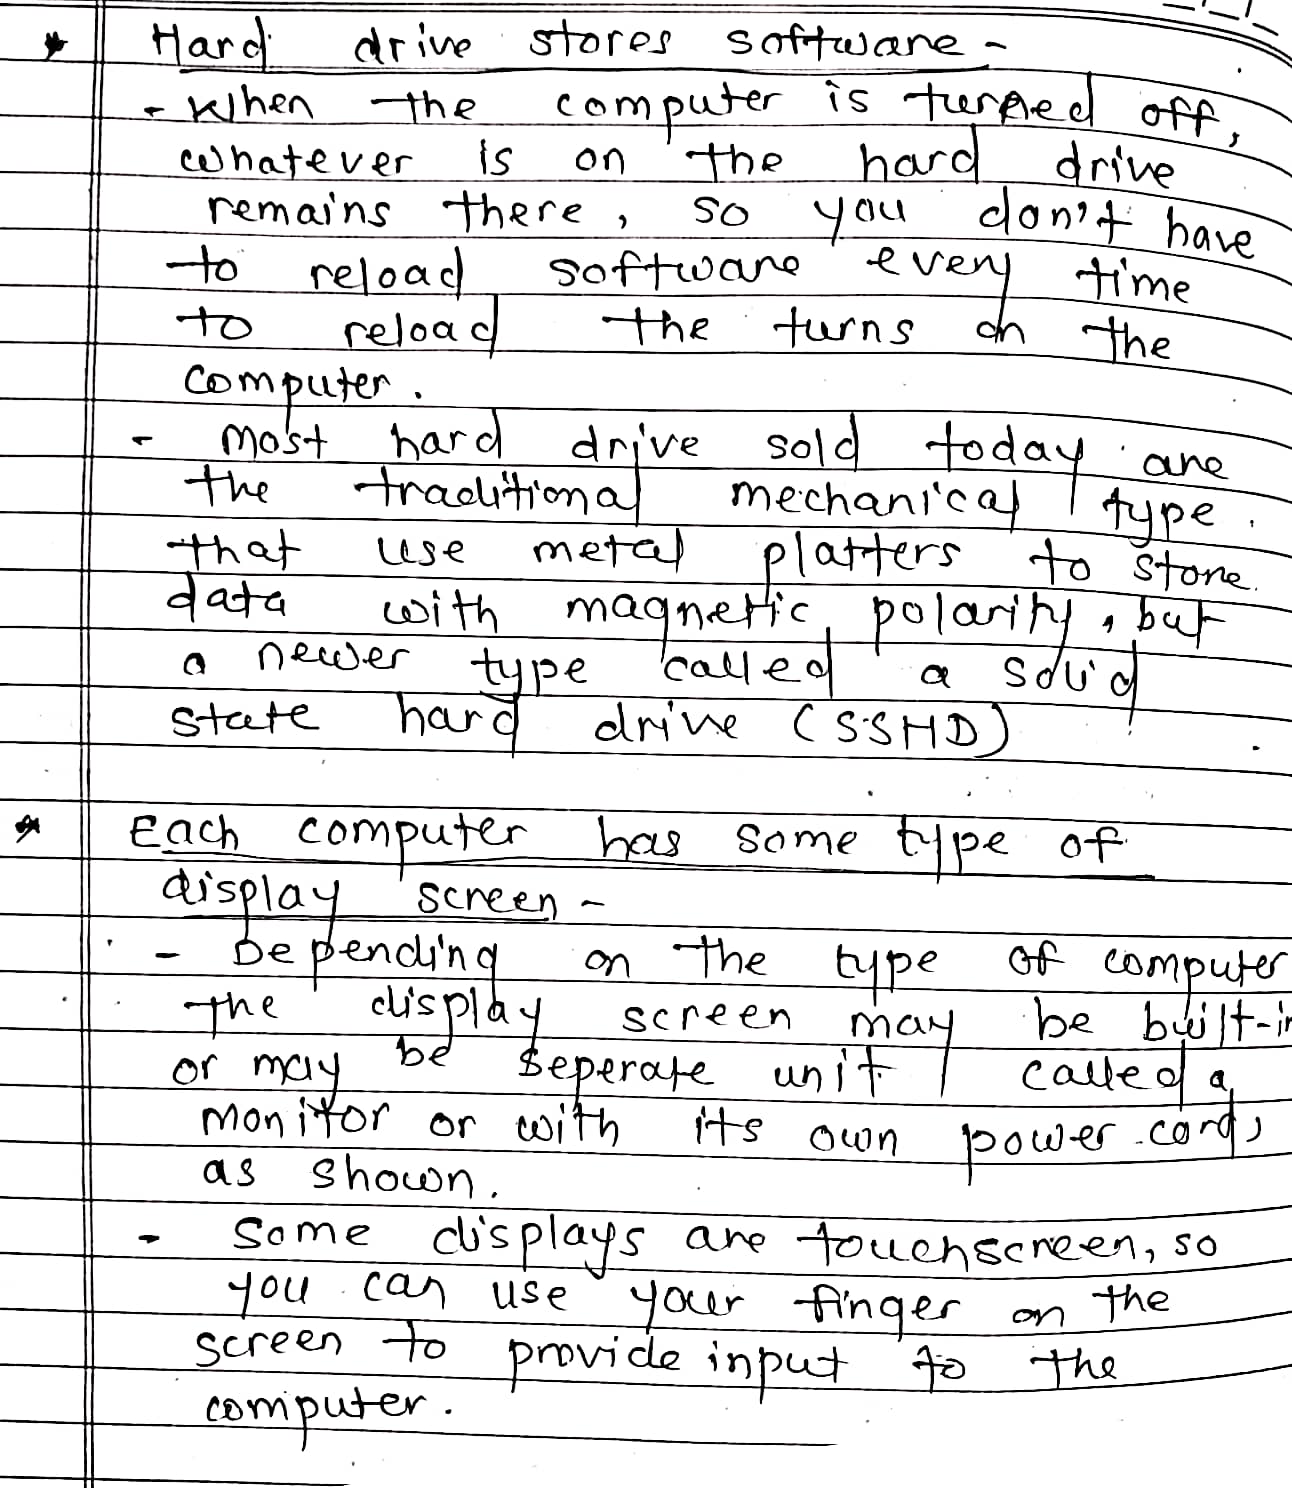 * Hard drive stores software -
- When the computer is turned off,
whatever is on the hard drive
remains there, so you don't have
to reload software every time
to reload the turns on the
computer.
- most hard drive sold today are
the traditional mechanical type.
that use metal platters to store.
data with magnetic polarity, but
a newer type called a solid
state hard drive (SSHD)
* Each computer has some type of
display screen -
- Depending on the type of computer
the display screen may be built-in
or may be seperate unit called a
monitor or with its own power cord,
as shown.
- Some displays are touchscreen, so
you can use your finger on the
screen to provide input to the
computer.